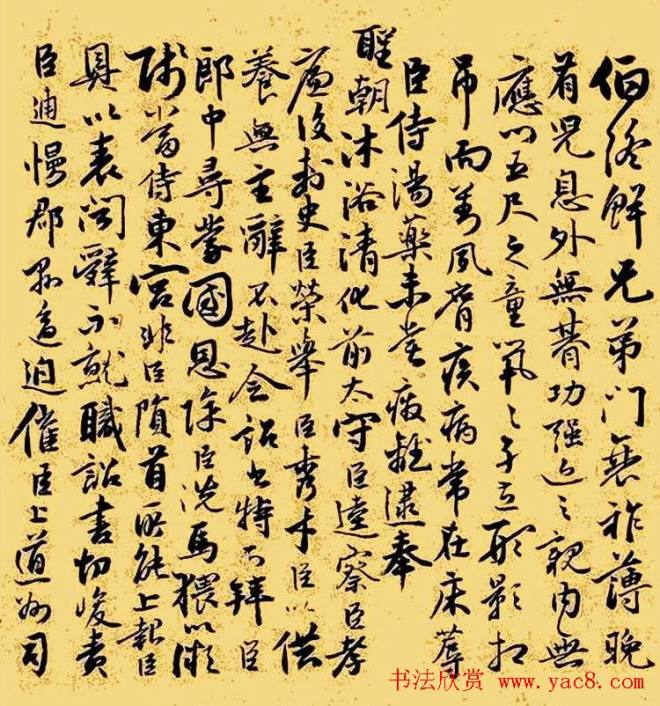 伯終鮮兄弟門衰祚薄晚
有兒息外無朞功强近之親内無
應門五尺之童煢々孑立形影相
吊而劉夙嬰疾病常在床蓐
臣侍湯藥未嘗廢離逮奉
聖朝沐浴清化前太守臣逵察臣孝
廉後刺史臣榮舉臣秀才臣以供
養無主辭不赴命詔書特下拜臣
郎中尋蒙國恩除臣洗馬猥以微
賤當侍東宮非臣隕首所能上報臣
具以表聞辭不就職詔書切峻責
臣逋慢郡縣逼迫催臣上道州司
书法欣赏 www.yac8.com